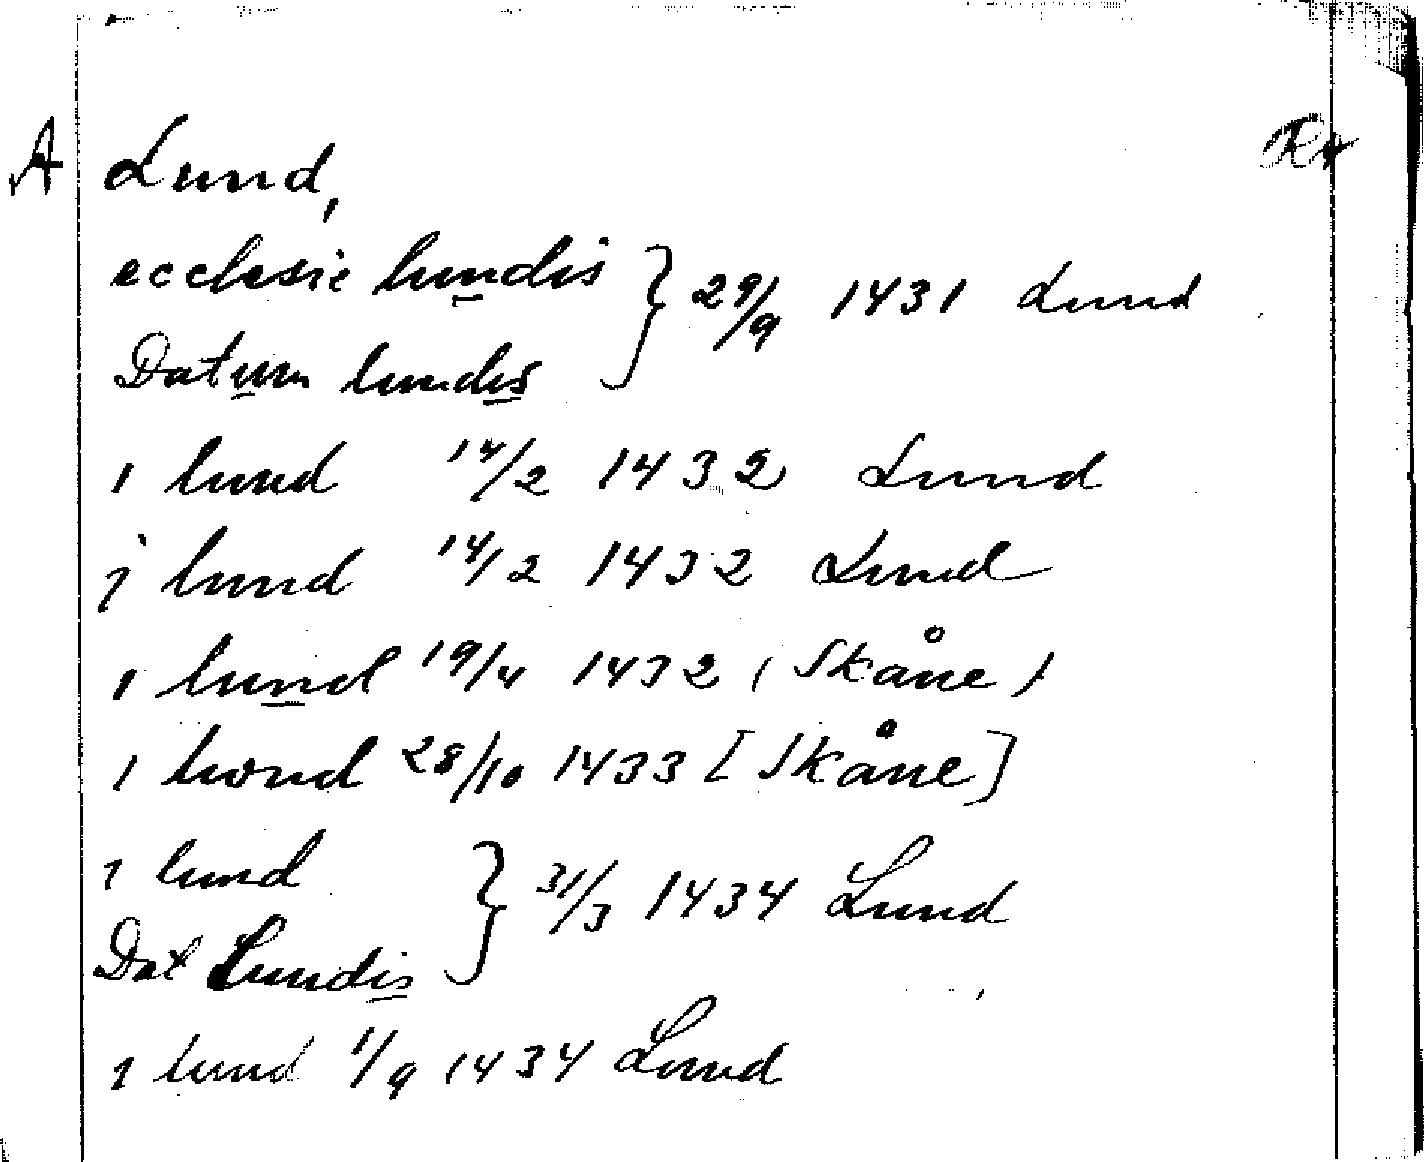 A Lund, Kr
ecclesie lundis } 29/9 1431 Lund
Datum lundis
i lund 14/2 1432 Lund
j lund 14/2 1432 Lund
i lund 19/4 1432 (Skåne)
i lwnd 28/10 1433 [Skåne]
i lund } 31/3 1434 Lund
Dat Lundis
i lund 1/9 1434 Lund